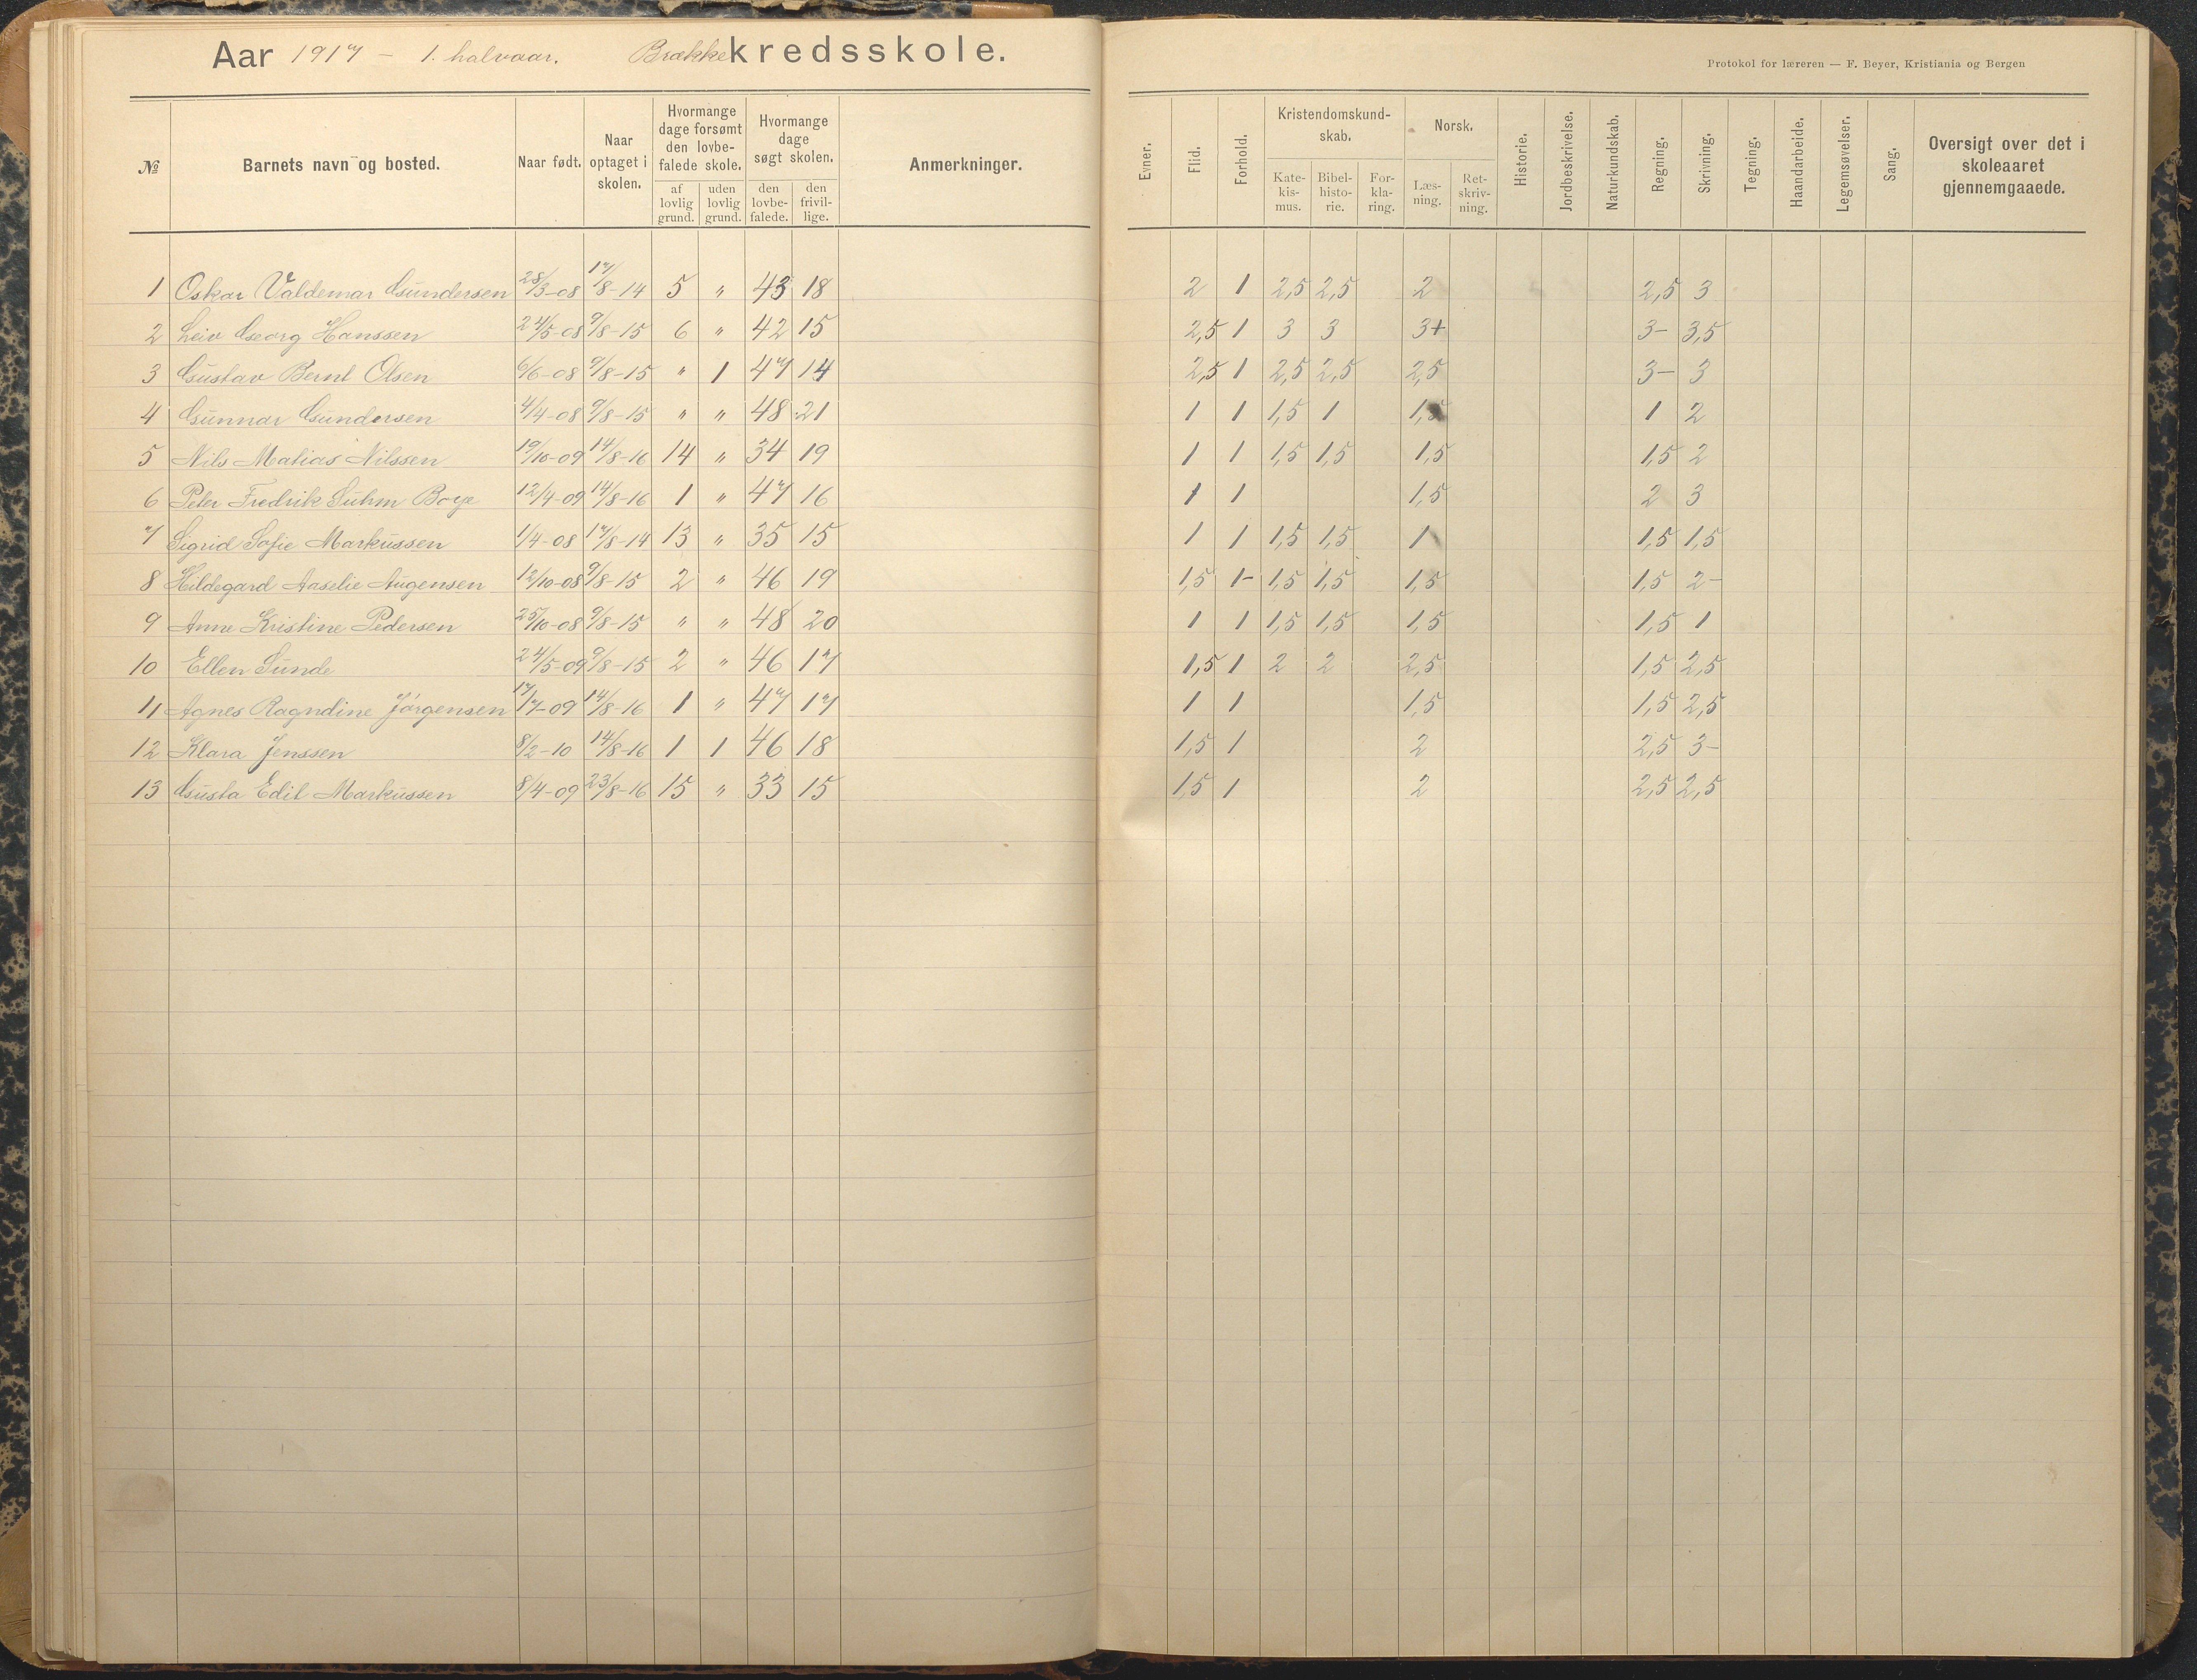 Aar 1917 – 1. halvaar. Brække kredsskole.
Protokol for læreren — F. Beyer, Kristiania og Bergen
№ Barnets navn og bosted. Naar født. Naar optaget i skolen. Hvormange dage forsømt den lovbefalede skole. af lovlig grund. uden lovlig grund. Hvormange dage søgt skolen. den lovbefalede. den frivillige. Anmerkninger. Evner. Flid. Forhold. Kristendomskundskab. Katekismus. Bibelhistorie. Forklaring. Norsk. Læsning. Retskrivning. Historie. Jordbeskrivelse. Naturkundskab. Regning. Skrivning. Tegning. Haandarbeide. Legemsøvelser. Sang. Oversigt over det i skoleaaret gjennemgaaede.
1 Oskar Valdemar Gundersen 28/3-08 17/8-14 5 " 43 18 2 1 2,5 2,5 2 2,5 3
2 Leiv Georg Hanssen 24/5-08 9/8-15 6 " 42 15 2,5 1 3 3 3+ 3- 3,5
3 Gustav Bernt Olsen 6/6-08 9/8-15 " 1 47 14 2,5 1 2,5 2,5 2,5 3- 3
4 Gunnar Gundersen 4/4-08 9/8-15 " " 48 21 1 1 1,5 1 1,5 1 2
5 Nils Matias Nilssen 19/10-09 14/8-16 14 " 34 19 1 1 1,5 1,5 1,5 1,5 2
6 Peter Fredrik Suhm Boye 12/4-09 14/8-16 1 " 47 16 1 1 1,5 2 3
7 Sigrid Sofie Markussen 1/4-08 17/8-14 13 " 35 15 1 1 1,5 1,5 1 1,5 1,5
8 Hildegard Aaselie Augensen 12/10-08 9/8-15 2 " 46 19 1,5 1- 1,5 1,5 1,5 1,5 2-
9 Anne Kristine Pedersen 25/10-08 9/8-15 " " 48 20 1 1 1,5 1,5 1,5 1,5 1
10 Ellen Sunde 24/5-09 9/8-15 2 " 46 17 1,5 1 2 2 2,5 1,5 2,5
11 Agnes Ragndine Jörgensen 17/7-09 14/8-16 1 " 47 17 1 1 1,5 1,5 2,5
12 Klara Jenssen 8/2-10 14/8-16 1 1 46 18 1,5 1 2 2,5 3-
13 Gusta Edit Markussen 8/4-09 23/8-16 15 " 33 15 1,5 1 2 2,5 2,5